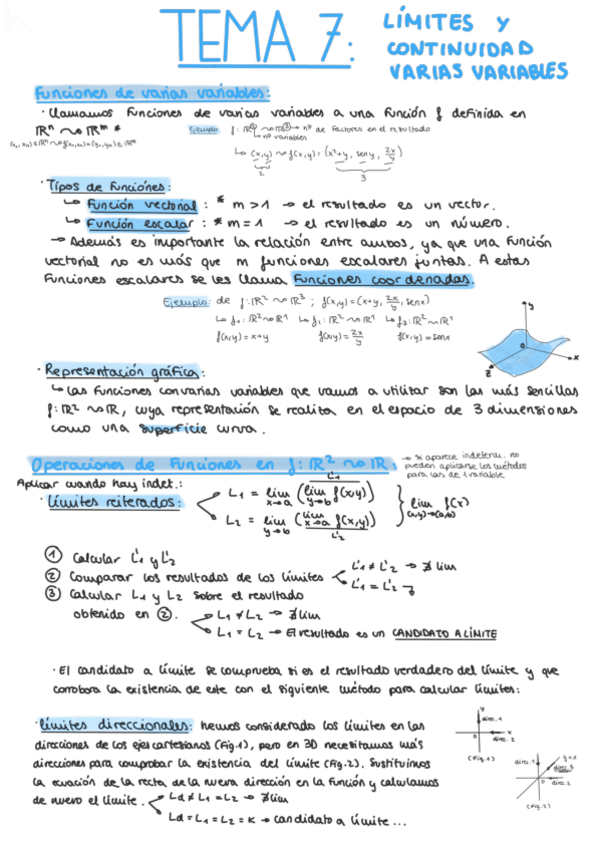 TEMA 7: LÍMITES Y
CONTINUIDAD
VARIAS VARIABLES
Funciones de varias variables:
· Llamamos funciones de varias variables a una función f definida en
ℝⁿ ⤳ ℝᵐ *
Ejemplo: f: ℝ² ⤳ ℝ³ → nº de factores en el resultado
nº variables
↳ (x,y) ⤳ f(x,y) = (x²+y, sen y, 2x/y)
2
3
· Tipos de funciones:
↳ Función vectorial : * m > 1 → el resultado es un vector.
↳ Función escalar : * m = 1 → el resultado es un número.
→ Además es importante la relación entre ambos, ya que una función
vectorial no es más que m funciones escalares juntas. A estas
funciones escalares se les llama funciones coordenadas.
Ejemplo: de f: ℝ² ⤳ ℝ³ ; f(x,y) = (x+y, 2x/y, senx)
↳ f₁: ℝ² ⤳ ℝ¹ ↳ f₂: ℝ² ⤳ ℝ¹ ↳ f₃: ℝ² ⤳ ℝ¹
f(x,y) = x+y f(x,y) = 2x/y f(x,y) = senx
y
0
x
z
· Representación gráfica:
↳ Las funciones con varias variables que vamos a utilizar son las más sencillas
f: ℝ² ⤳ ℝ, cuya representación se realiza en el espacio de 3 dimensiones
como una superficie curva.
Operaciones de funciones en f: ℝ² ⤳ ℝ :
→ si aparece indeterm. no
pueden aplicarse los métodos
para las de 1 variable
Aplicar cuando hay indet.:
· Límites reiterados:
L'₁
L₁ = lim x→a (lim y→b f(x,y))
L₂ = lim y→b (lim x→a f(x,y))
L'₂
lim (x,y)→(a,b) f(x)
① Calcular L'₁ y L'₂
② Comparar los resultados de los límites
L'₁ ≠ L'₂ → ∄ lim
L'₁ = L'₂
③ Calcular L₁ y L₂ sobre el resultado
obtenido en ②.
L₁ ≠ L₂ → ∄ lim
L₁ = L₂ → El resultado es un CANDIDATO A LÍMITE
· El candidato a límite se comprueba si es el resultado verdadero del límite y que
corrobora la existencia de este con el siguiente método para calcular límites:
· Límites direccionales: hemos considerado los límites en las
direcciones de los ejes cartesianos (Fig.1), pero en 3D necesitamos más
direcciones para comprobar la existencia del límite (Fig.2). Sustituimos
la ecuación de la recta de la nueva dirección en la función y calculamos
de nuevo el límite.
Ld ≠ L₁ = L₂ → ∄ lim
Ld = L₁ = L₂ = K → candidato a límite ...
y
direc. 1
x
0
direc. 2
(Fig.1)
direc. 1
y=x
direc. 3
0
direc. 2
(Fig.2)